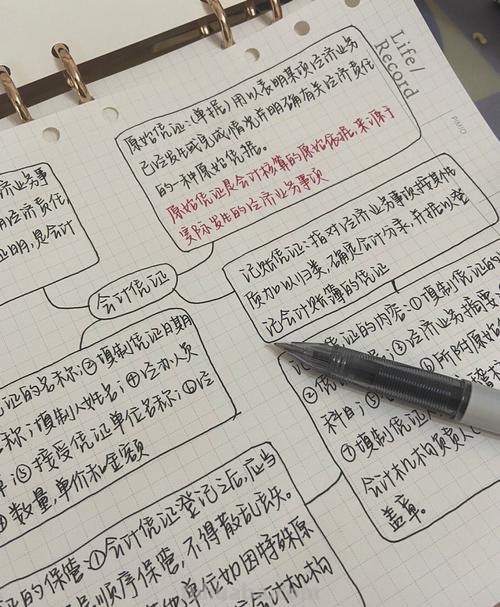 Life/
Record
原始凭证:(单据)用以表明某项经济业务
已经发生或完成情况并明确有关经济责任
的一种原始凭据。
原始凭证是会计核算的原始依据,来源于
实际发生的经济业务事项
济业务事
经济责任,
证明,是会计
会计凭证
记账凭证:指对经济业务事项按其性
质加以归类,确定会计分录,并据以登
记会计账簿的凭证
证的名称;②填制凭证日期
名称;填制人姓名;④经办人员
⑤接受凭证单位名称;⑥经
数量,单价和金额
凭证的内容:①填制凭证的
②凭
③经济业务摘要
科目;⑤
⑥所附原始
⑦填制凭证人
会计机构负责人
盖章。
证的保管:①会计凭证登记之后,应当
顺序保管,不得散乱丢失。
单位如因特殊原
会计机构